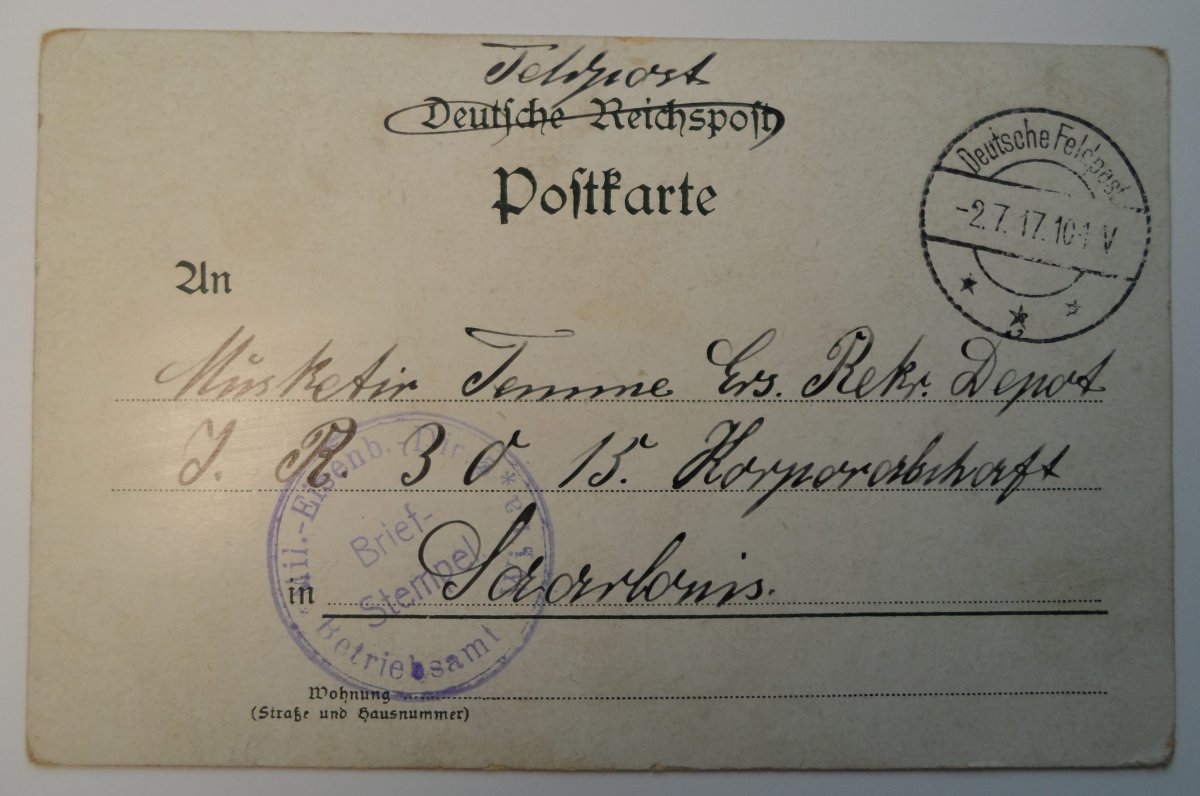 Feldpost
Deutsche Reichspost
Postkarte
Deutsche Feldpost
-2.7.17.10-1 V
An
Musketir Temme Ers. Rekr. Depot
I. R. 30 15. Korporalschaft
in Saarlouis.
Mil.-Eisenb.-Dir.
Brief-
Stempel
Betriebsamt
Wohnung
(Straße und Hausnummer)